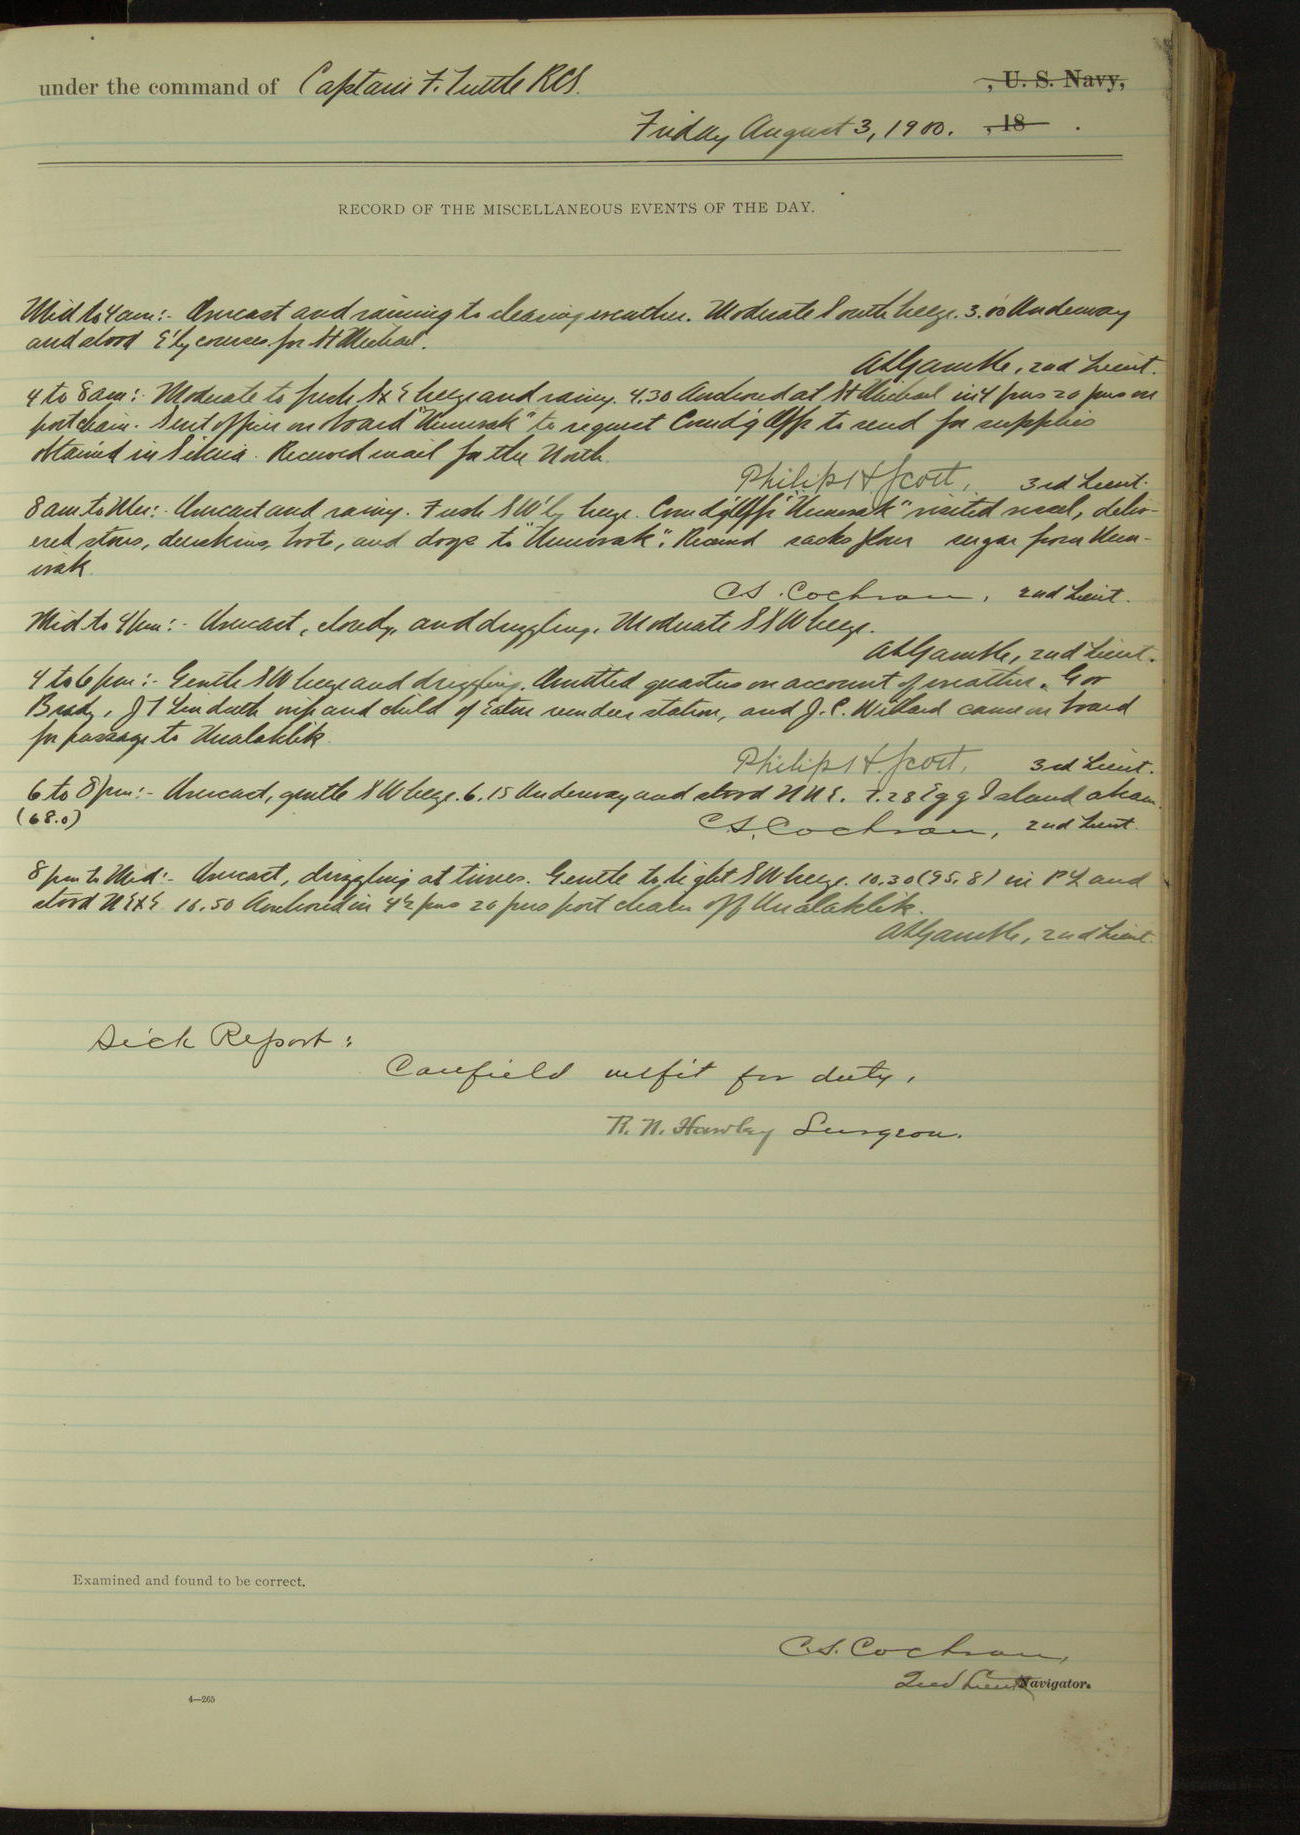 under the command of Captain F. Tuttle RCS. , U. S. Navy,
Friday August 3, 1900. , 18 .
RECORD OF THE MISCELLANEOUS EVENTS OF THE DAY.
Mid to 4 am:- Overcast and raining to clearing weather. Moderate South breeze. 3.00 Underway
and stood E'ly courses for St Michael.
A L Gamble, 2nd Lieut.
4 to 8 am:- Moderate to fresh SxE breeze and rainy. 4.30 Anchored at St Michael in 4 fms 20 fms on
port chain. Sent officer on board "Nunivak" to request Com'd'g Offr to send for supplies
obtained in Siberia. Received mail for the North.
Philip H Scott, 3rd Lieut.
8 am to Mer:- Overcast and rainy. Fresh SW'ly breeze. Com'd'g Offr "Nunivak" visited vessel, deliv-
ered stores, deerskins, boots, and dogs to "Nunivak". Received sacks flour sugar from Nun-
ivak.
C.S. Cochran, 2nd Lieut.
Mid to 4 pm:- Overcast, cloudy, and drizzling. Moderate SSW breeze.
A L Gamble, 2nd Lieut.
4 to 6 pm:- Gentle SW breeze and drizzling. Omitted quarters on account of weather. Gov
Brady, J T wife and child of Eaton reindeer station, and J. C. Widsted came on board
for passage to Unalaklik.
Philip H. Scott, 3rd Lieut.
6 to 8 pm:- Overcast, gentle SW breeze. 6.15 Underway and stood NNE. 7.28 Egg Island abeam.
(68.0)
C.S. Cochran, 2nd Lieut.
8 pm to Mid:- Overcast, drizzling at times. Gentle to light SW breeze. 10.30 (95.8) in P L and
stood NExE 10.50 Anchored in 4½ fms 20 fms port chain off Unalaklik.
A L Gamble, 2nd Lieut.
Sick Report:
Caufield unfit for duty.
R. N. Hawley Surgeon.
Examined and found to be correct.
C.S. Cochran,
2nd Lieut Navigator.
4—265